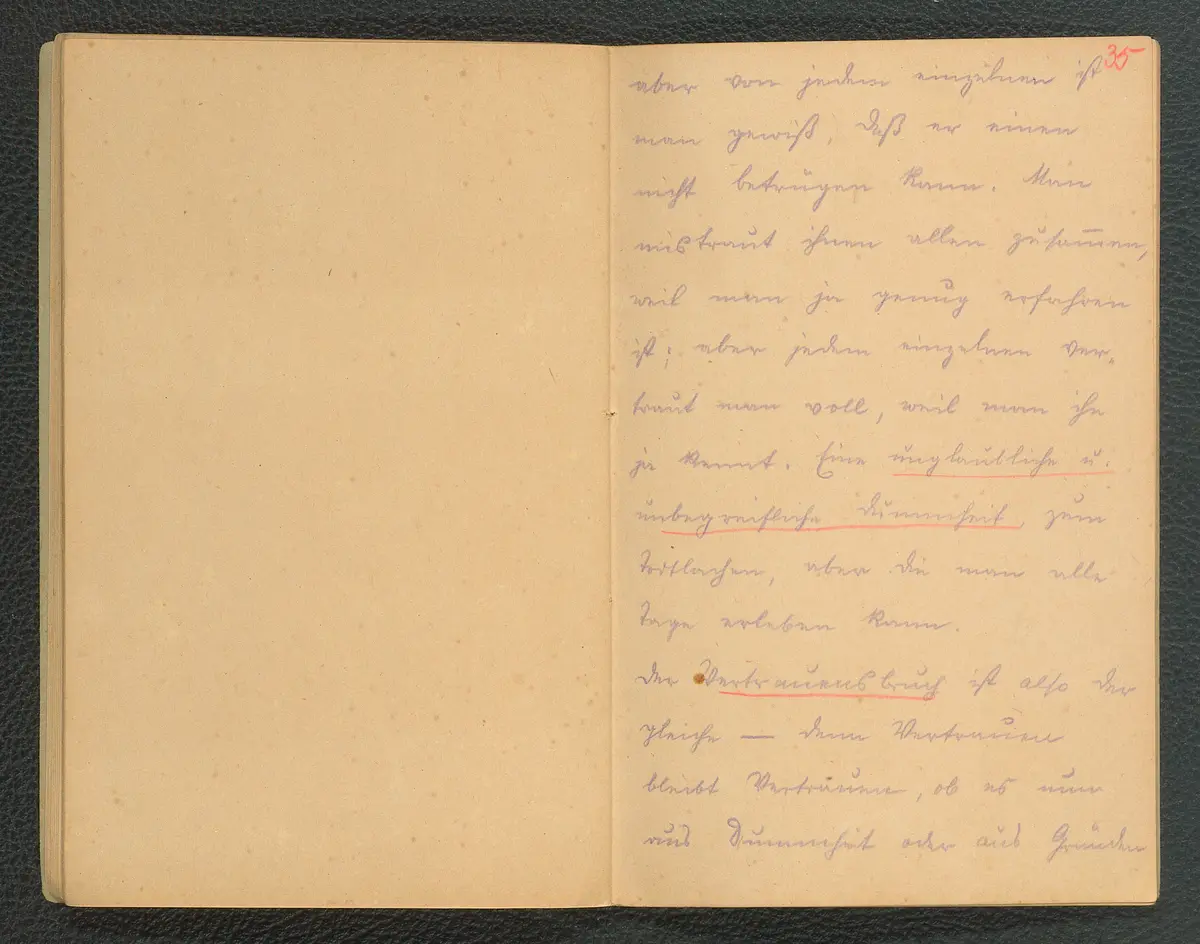 35
aber von jedem einzelnen ist
man gewiß, daß er einen
nicht betrügen kann. Man
mistraut ihnen allen zusam̅en,
weil man ja genug erfahren
ist; aber jedem einzelnen ver-
traut man voll, weil man ihn
ja kennt. Eine unglaubliche u.
unbegreifliche Dummheit, zum
Todtlachen, aber die man alle
Tage erleben kann.
Der Vertrauensbruch ist also der
gleiche — denn Vertrauen
bleibt Vertrauen, ob es nun
aus Dummheit oder aus Gründen